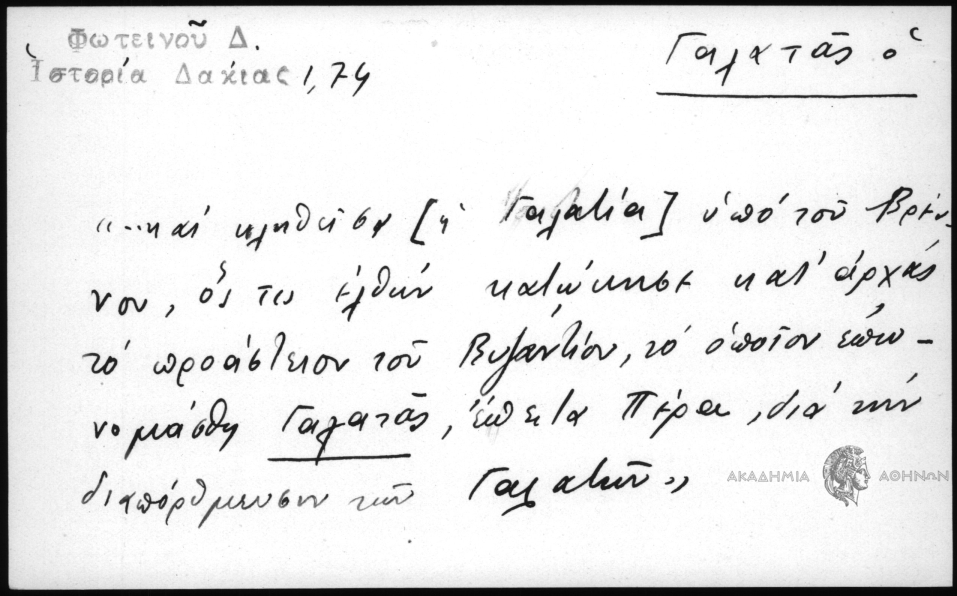 Φωτεινοῦ Δ.
Ἱστορία Δακίας 1,74
Γαλατᾶς ὁ
"...καί κληθεῖσα [ἡ Γαλατία] ὑπό τοῦ Βρέν-
νου, ὅς τις ἐλθών κατῴκησε κατ' ἀρχάς
τό προάστειον τοῦ Βυζαντίου, τό ὁποῖον ἐπω-
νομάσθη Γαλατᾶς, ἔπειτα Πέρα, διά τήν
διαπόρθμευσιν τῶν Γαλατῶν"
ΑΚΑΔΗΜΙΑ ΑΘΗΝΩΝ